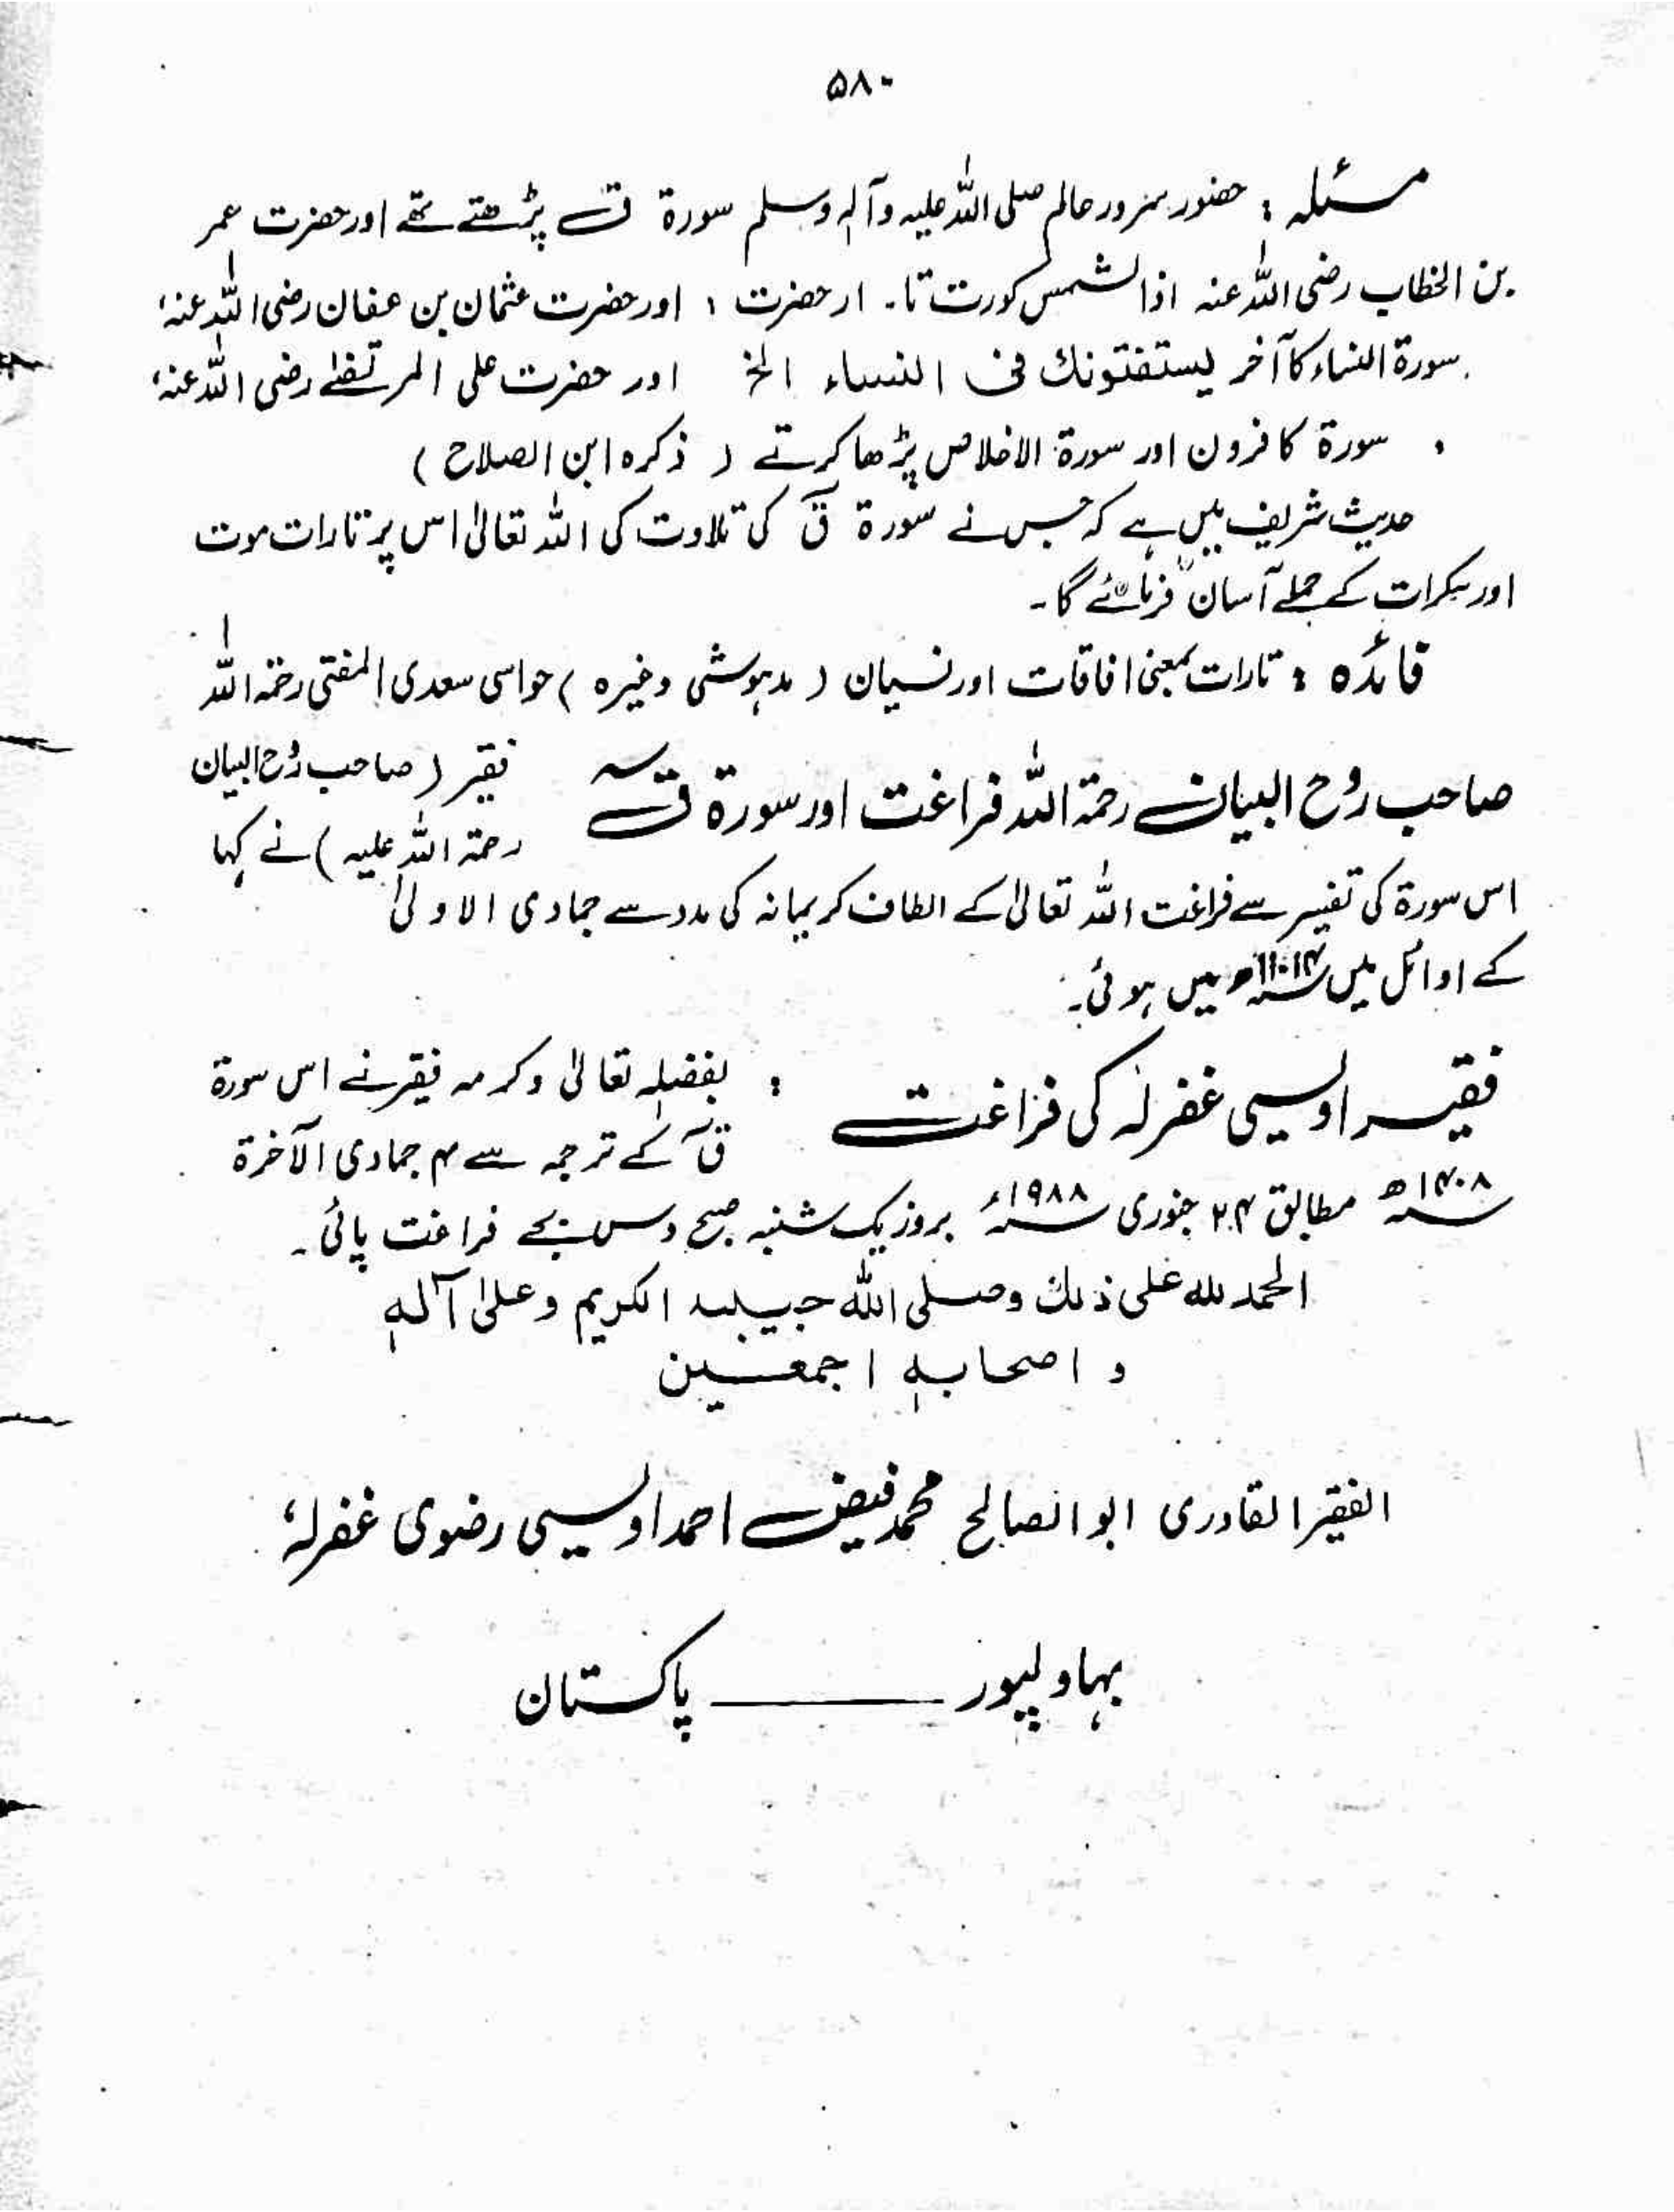 ۵۸۰
مسئلہ : حضور سرور عالم صلی اللہ علیہ وآلہٖ وسلم سورۃ قٓ پڑھتے تھے اور حضرت عمر
بن الخطاب رضی اللہ عنہ اذا الشمس کورت تا۔ ارحضرت ، اور حضرت عثمان بن عفان رضی اللہ عنہ،
سورۃ النساء کا آخر یستفتونک فی النساء الخ اور حضرت علی المرتضےٰ رضی اللہ عنہ،
، سورۃ کافرون اور سورۃ الاخلاص پڑھا کرتے ( ذکرہ ابن الصلاح )
حدیث شریف میں ہے کہ جس نے سورۃ قٓ کی تلاوت کی اللہ تعالیٰ اس پر تارات موت
اور سکرات کے حملے آسان فرمائے گا۔
فائدہ : تارات بمعنی افاقات اور نسیان ( مدہوشی وغیرہ ) حواسی سعدی المفتی رحمۃ اللہ
صاحب رُوح البیان رحمۃ اللہ فراغت اور سورۃ قٓ فقیر ( صاحب رُوح البیان
رحمۃ اللہ علیہ ) نے کہا
اس سورۃ کی تفسیر سے فراغت اللہ تعالیٰ کے الطاف کریمانہ کی مدد سے جمادی الاولیٰ
کے اوائل میں ۱۱۰۱۴ھ میں ہوئی۔
فقیر اویسی غفرلہ کی فراغت : بفضلہٖ تعالیٰ وکرمہ فقیر نے اس سورۃ
قٓ کے ترجمہ سے ۴ جمادی الآخرۃ
۱۴۰۸ھ مطابق ۲۴ جنوری ۱۹۸۸ء بروز یک شنبہ صبح دس بجے فراغت پائی۔
الحمد للہ علی ذلک وصلی اللہ حبیبہ الکریم وعلیٰ آلہٖ
و اصحابہٖ اجمعین
الفقیر القادری ابو الصالح محمد فیض احمد اویسی رضوی غفرلہٗ
بہاولپور ـــــــــ پاکستان